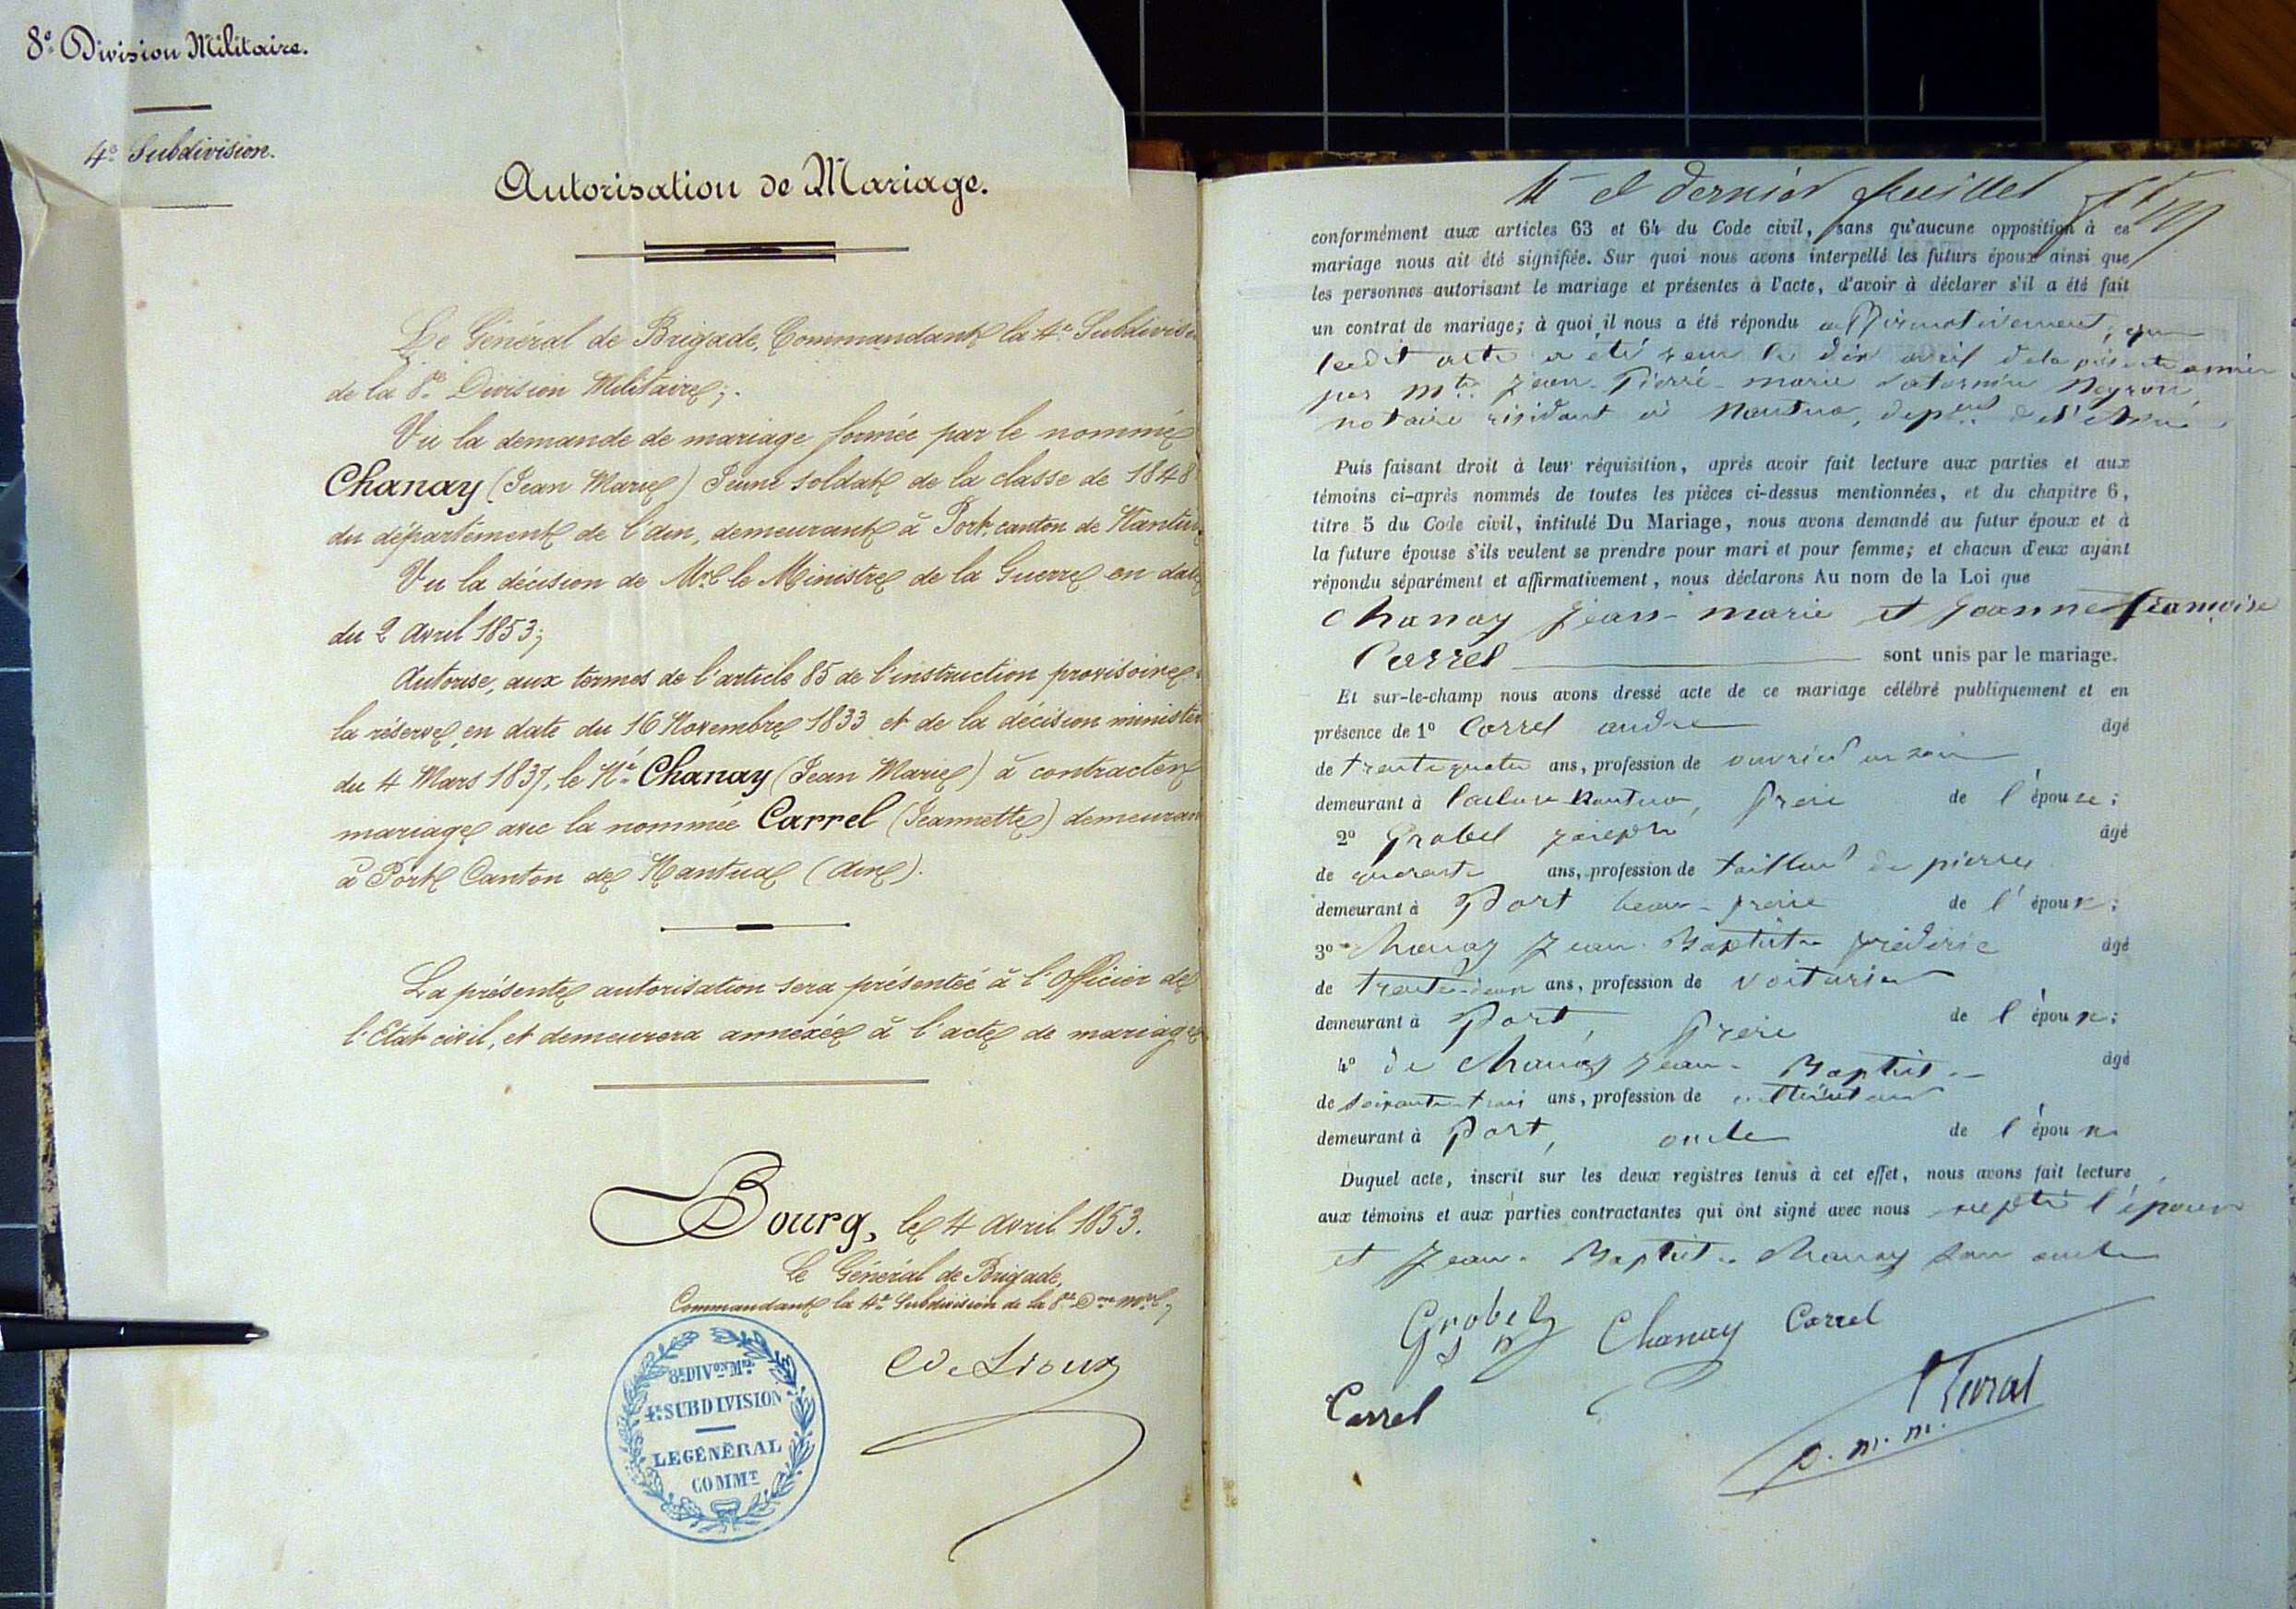 8e. Division Militaire.
4e. Subdivision.
Autorisation de Mariage.
Le Général de Brigade, Commandant la 4e. Subdivis
de la 8e. Division Militaire;
Vu la demande de mariage formée par le nommé
Chanay (Jean Marie) Jeune soldat de la classe de 1848
du département de l'Ain, demeurant à Port, canton de Nantua
Vu la décision de Mr. le Ministre de la Guerre en date
du 2 Avril 1853;
Autorise, aux termes de l'article 85 de l'instruction provisoire
la réserve, en date du 16 Novembre 1833 et de la décision minister
du 4 Mars 1837, le Né. Chanay (Jean Marie) à contracter
mariage avec la nommée Carrel (Jeannette) demeuran
à Port Canton de Nantua (Ain).
La présente autorisation sera présentée à l'Officier de
l'Etat civil, et demeurera annexée à l'acte de mariage
Bourg, le 4 Avril 1853.
Le Général de Brigade,
Commandant la 4e. Subdivision de la 8e. Don. Mre.,
8E DIVON MRE
4E SUBDIVISION
LE GÉNÉRAL
COMMT
4e et dernier feuillet
conformément aux articles 63 et 64 du Code civil, sans qu'aucune opposition à ce
mariage nous ait été signifiée. Sur quoi nous avons interpellé les futurs époux ainsi que
les personnes autorisant le mariage et présentes à l'acte, d'avoir à déclarer s'il a été fait
un contrat de mariage; à quoi il nous a été répondu affirmativement, que
ledit acte a été reçu le dix avril de la présente année
par Mtre. Jean-Pierre-Marie Saturnin Neyron,
notaire résidant à Nantua, depent. de l'Ain.
Puis faisant droit à leur réquisition, après avoir fait lecture aux parties et aux
témoins ci-après nommés de toutes les pièces ci-dessus mentionnées, et du chapitre 6,
titre 5 du Code civil, intitulé Du Mariage, nous avons demandé au futur époux et à
la future épouse s'ils veulent se prendre pour mari et pour femme; et chacun d'eux ayant
répondu séparément et affirmativement, nous déclarons Au nom de la Loi que
Chanay Jean-marie et Jeanne françoise
Carrel sont unis par le mariage.
Et sur-le-champ nous avons dressé acte de ce mariage célébré publiquement et en
présence de 1o Carrel andré âgé
de trente quatre ans, profession de ouvrier en soie
demeurant à Nantua, frère de l'épouse;
2o Grobel Joseph âgé
de quarante ans, profession de tailleur de pierres
demeurant à Port beau-frère de l'époux;
3o Chanay Jean-Baptiste frédéric âgé
de trente-deux ans, profession de voiturier
demeurant à Port, frère de l'époux;
4o de Chanay Jean-Baptiste âgé
de soixante-trois ans, profession de cultivateur
demeurant à Port, oncle de l'époux
Duquel acte, inscrit sur les deux registres tenus à cet effet, nous avons fait lecture
aux témoins et aux parties contractantes qui ont signé avec nous excepté l'époux
et Jean-Baptiste Chanay son oncle
Grobel Chanay Carrel
Carrel